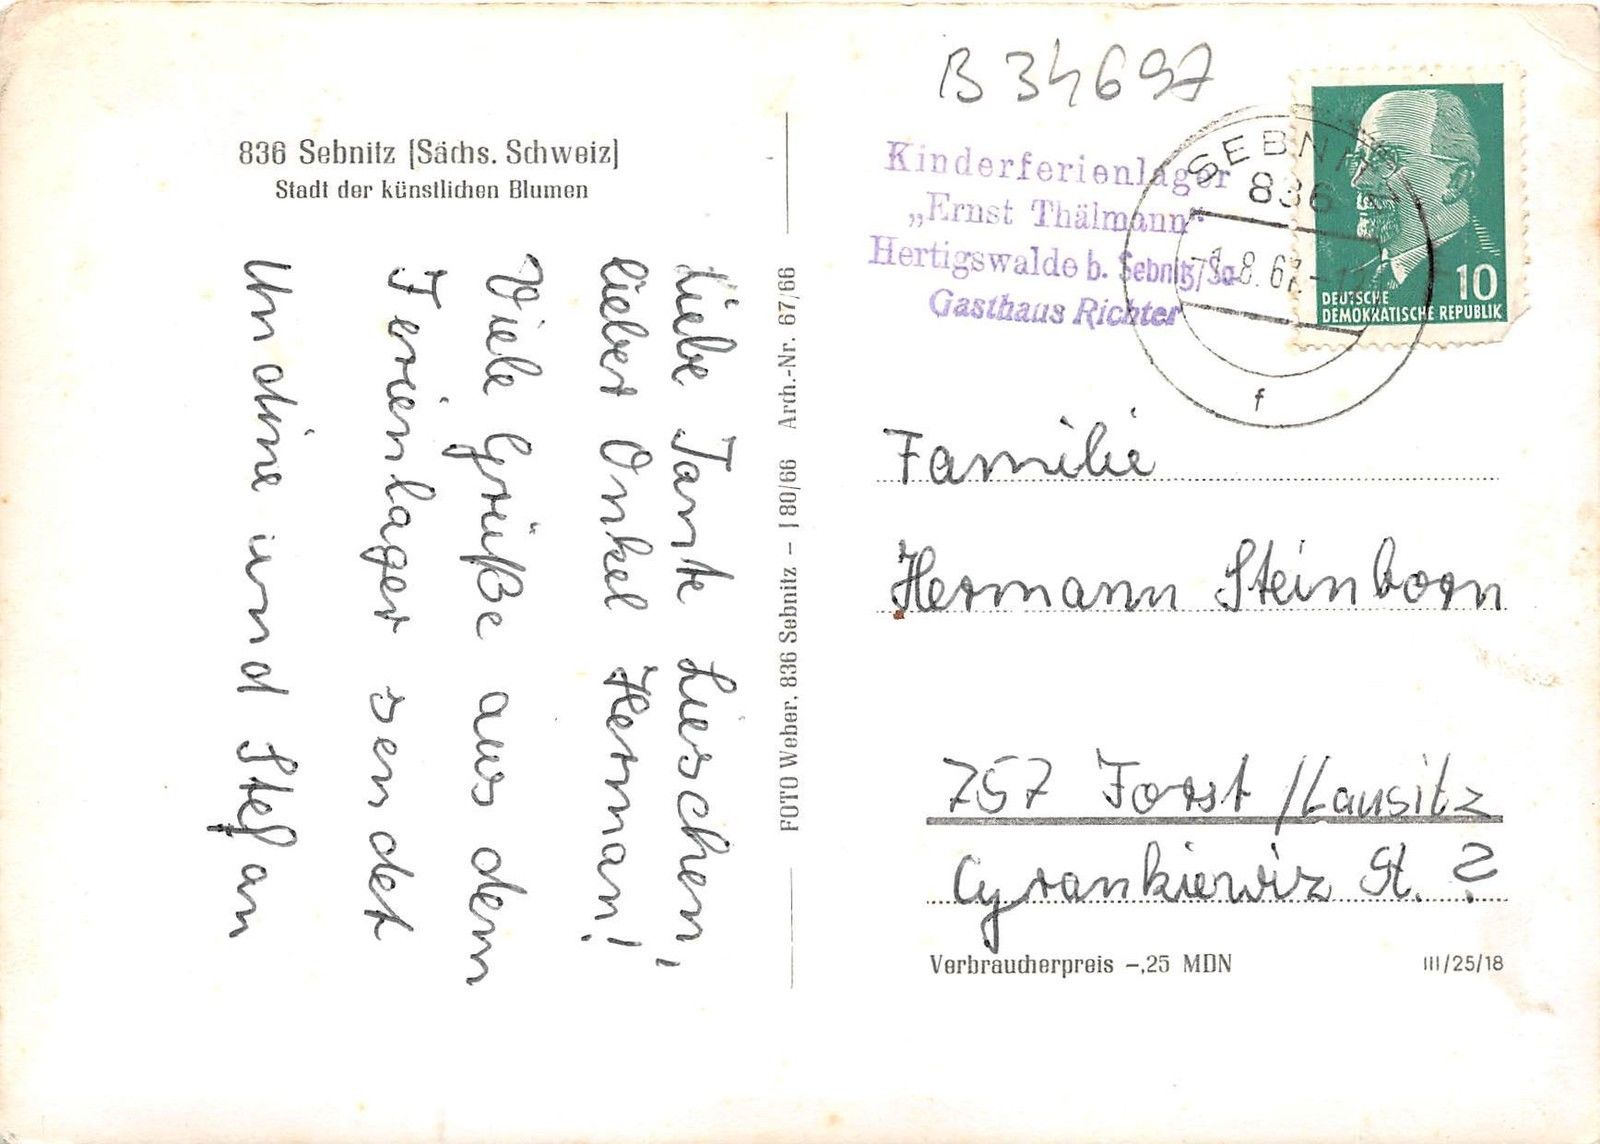 836 Sebnitz (Sächs. Schweiz)
Stadt der künstlichen Blumen
Liebe Tante Lieschen,
lieber Onkel Herman!
Viele Grüße aus dem
Ferienlager sendet
Undine und Stefan
FOTO Weber, 836 Sebnitz – I 80/66 Arch.-Nr. 67/66
B 34697
Kinderferienlager
„Ernst Thälmann“
Hertigswalde b. Sebnitz/Sa
Gasthaus Richter
SEBNITZ
836
8.67
f
10
DEUTSCHE
DEMOKRATISCHE REPUBLIK
Familie
Hermann Steinborn
757 Forst/Lausitz
Cyrankiewiz St. 2
Verbraucherpreis –,25 MDN
III/25/18